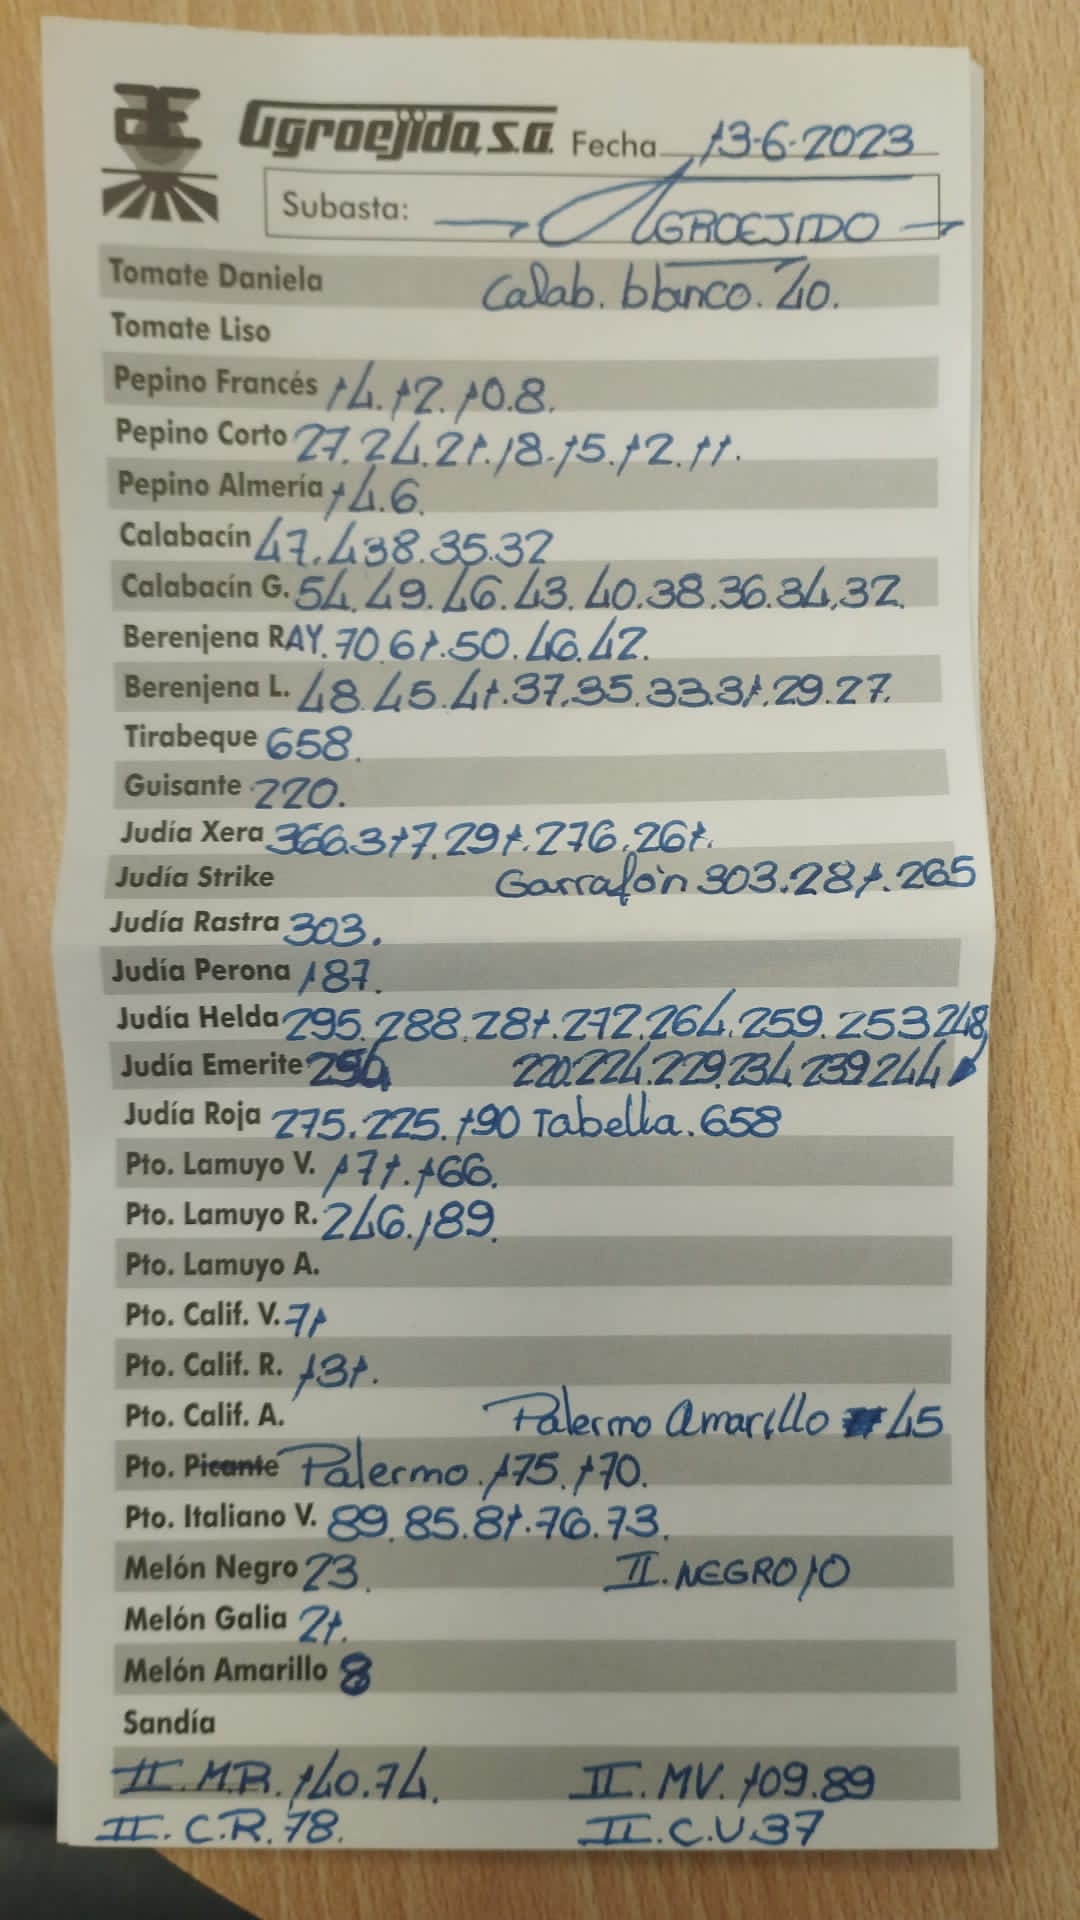 Agroejido, S.A. Fecha 13-6-2023
Subasta: AGROEJIDO
Tomate Daniela Calab. blanco. 40.
Tomate Liso
Pepino Francés 14.12.10.8.
Pepino Corto 27.24.21.18.15.12.11.
Pepino Almería 14.6.
Calabacín 47.438.35.32
Calabacín G. 54.49.46.43.40.38.36.34.32.
Berenjena RAY. 70.61.50.46.42.
Berenjena L. 48.45.41.37.35.33.31.29.27.
Tirabeque 658.
Guisante 220.
Judía Xera 366.317.291.276.261.
Judía Strike Garrafón 303.281.265
Judía Rastra 303.
Judía Perona 187.
Judía Helda 295.288.281.272.264.259.253.248,
Judía Emerite 220.224.229.234.239.244
Judía Roja 275.225.190 Tabella. 658
Pto. Lamuyo V. 171.166.
Pto. Lamuyo R. 246.189.
Pto. Lamuyo A.
Pto. Calif. V. 71
Pto. Calif. R. 131.
Pto. Calif. A. Palermo Amarillo 45
Pto. Picante Palermo. 175.170.
Pto. Italiano V. 89.85.81.76.73.
Melón Negro 23. II. NEGRO 10
Melón Galia 21.
Melón Amarillo 8
Sandía
II. M.R. 140.74. II. MV. 109.89
II. C.R. 78. II. C.V. 37